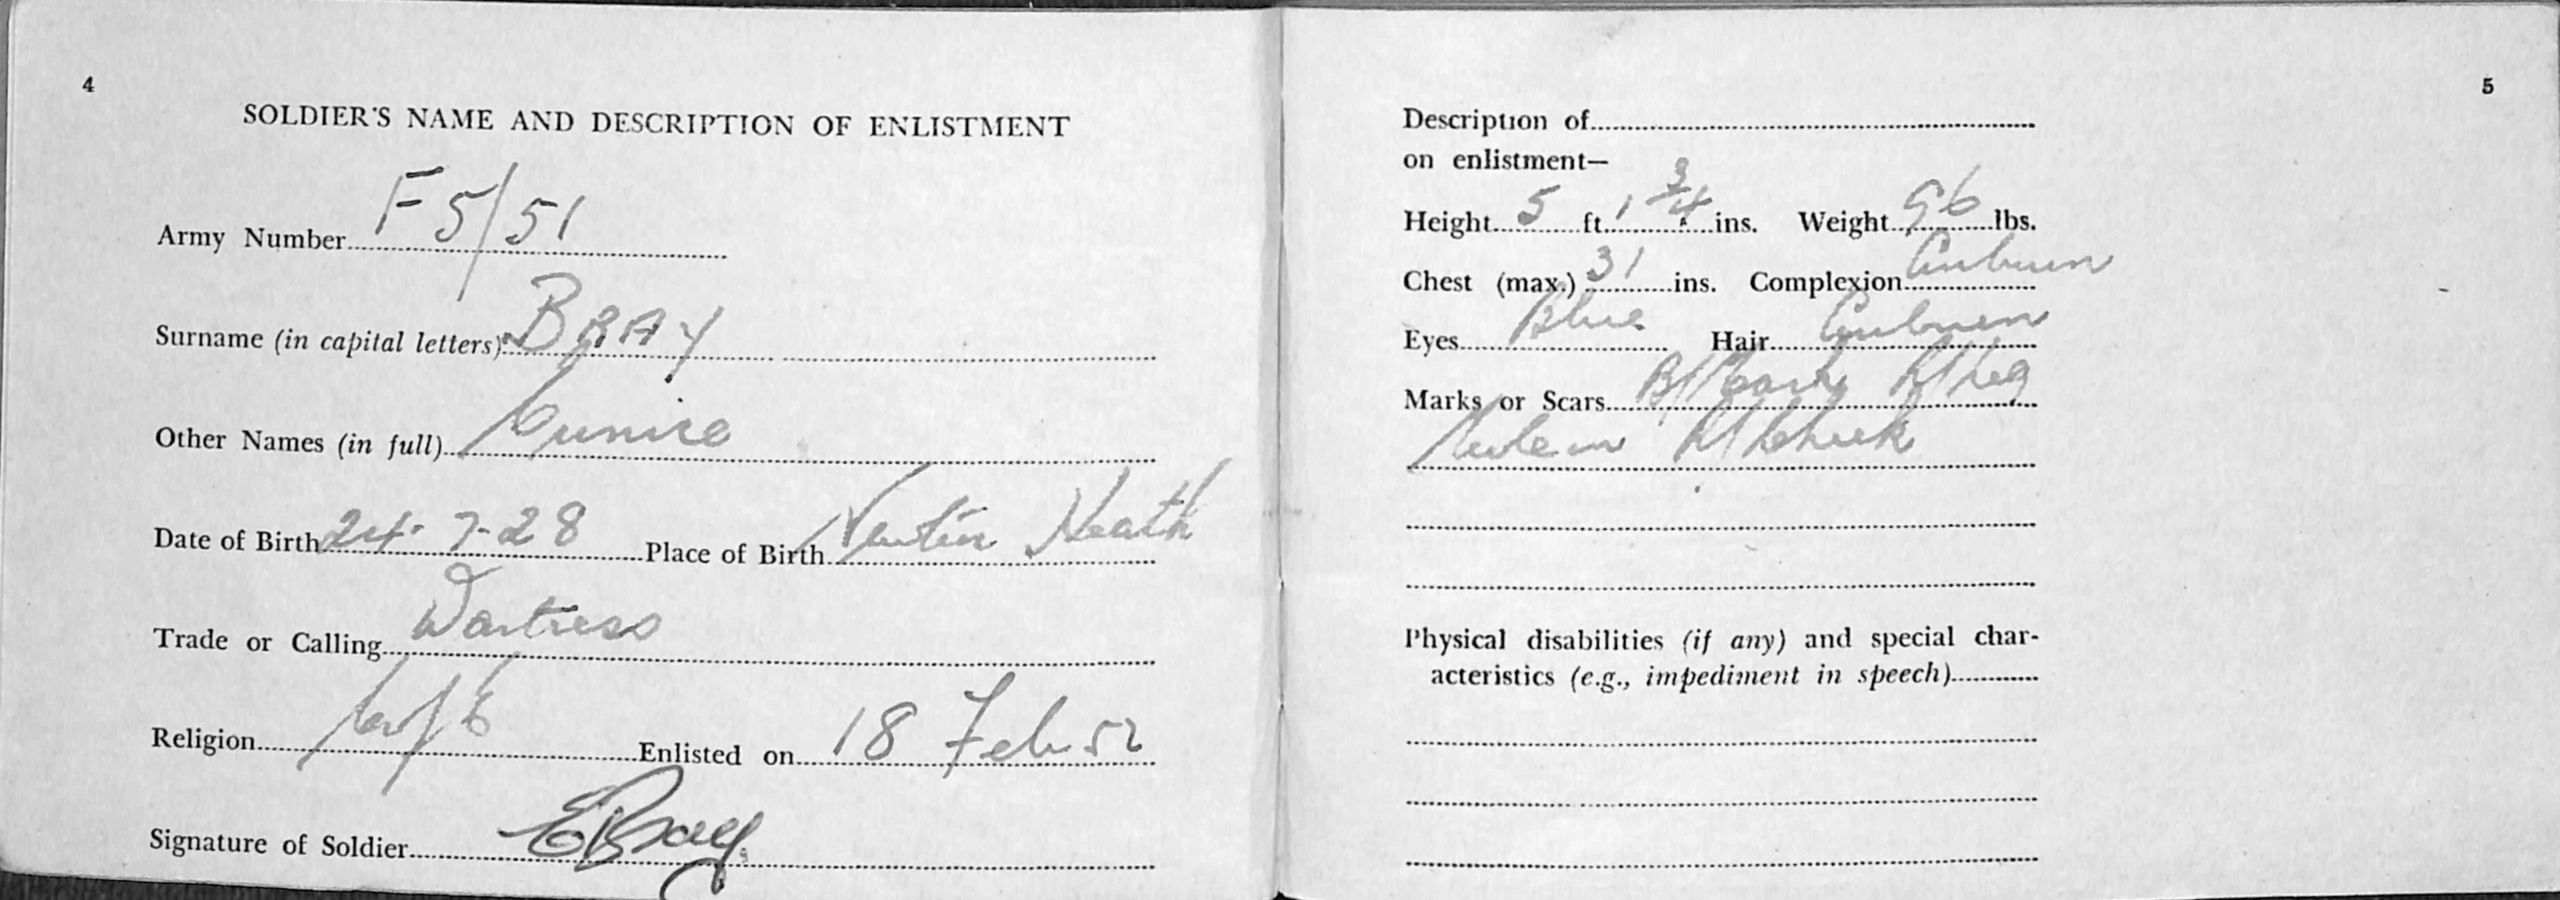 4
SOLDIER'S NAME AND DESCRIPTION OF ENLISTMENT
Army Number F 5/51
Surname (in capital letters) BRAY
Other Names (in full) Eunice
Date of Birth 24-7-28 Place of Birth Newton Heath
Trade or Calling Waitress
Religion C of E Enlisted on 18 Feb 52
Signature of Soldier E Bray
5
Description of
on enlistment—
Height 5 ft. 1 3/4 ins. Weight 96 lbs.
Chest (max.) 31 ins. Complexion Auburn
Eyes Blue Hair Auburn
Marks or Scars B/Mark R/Leg
Mole on R/Cheek
Physical disabilities (if any) and special char-
acteristics (e.g., impediment in speech)